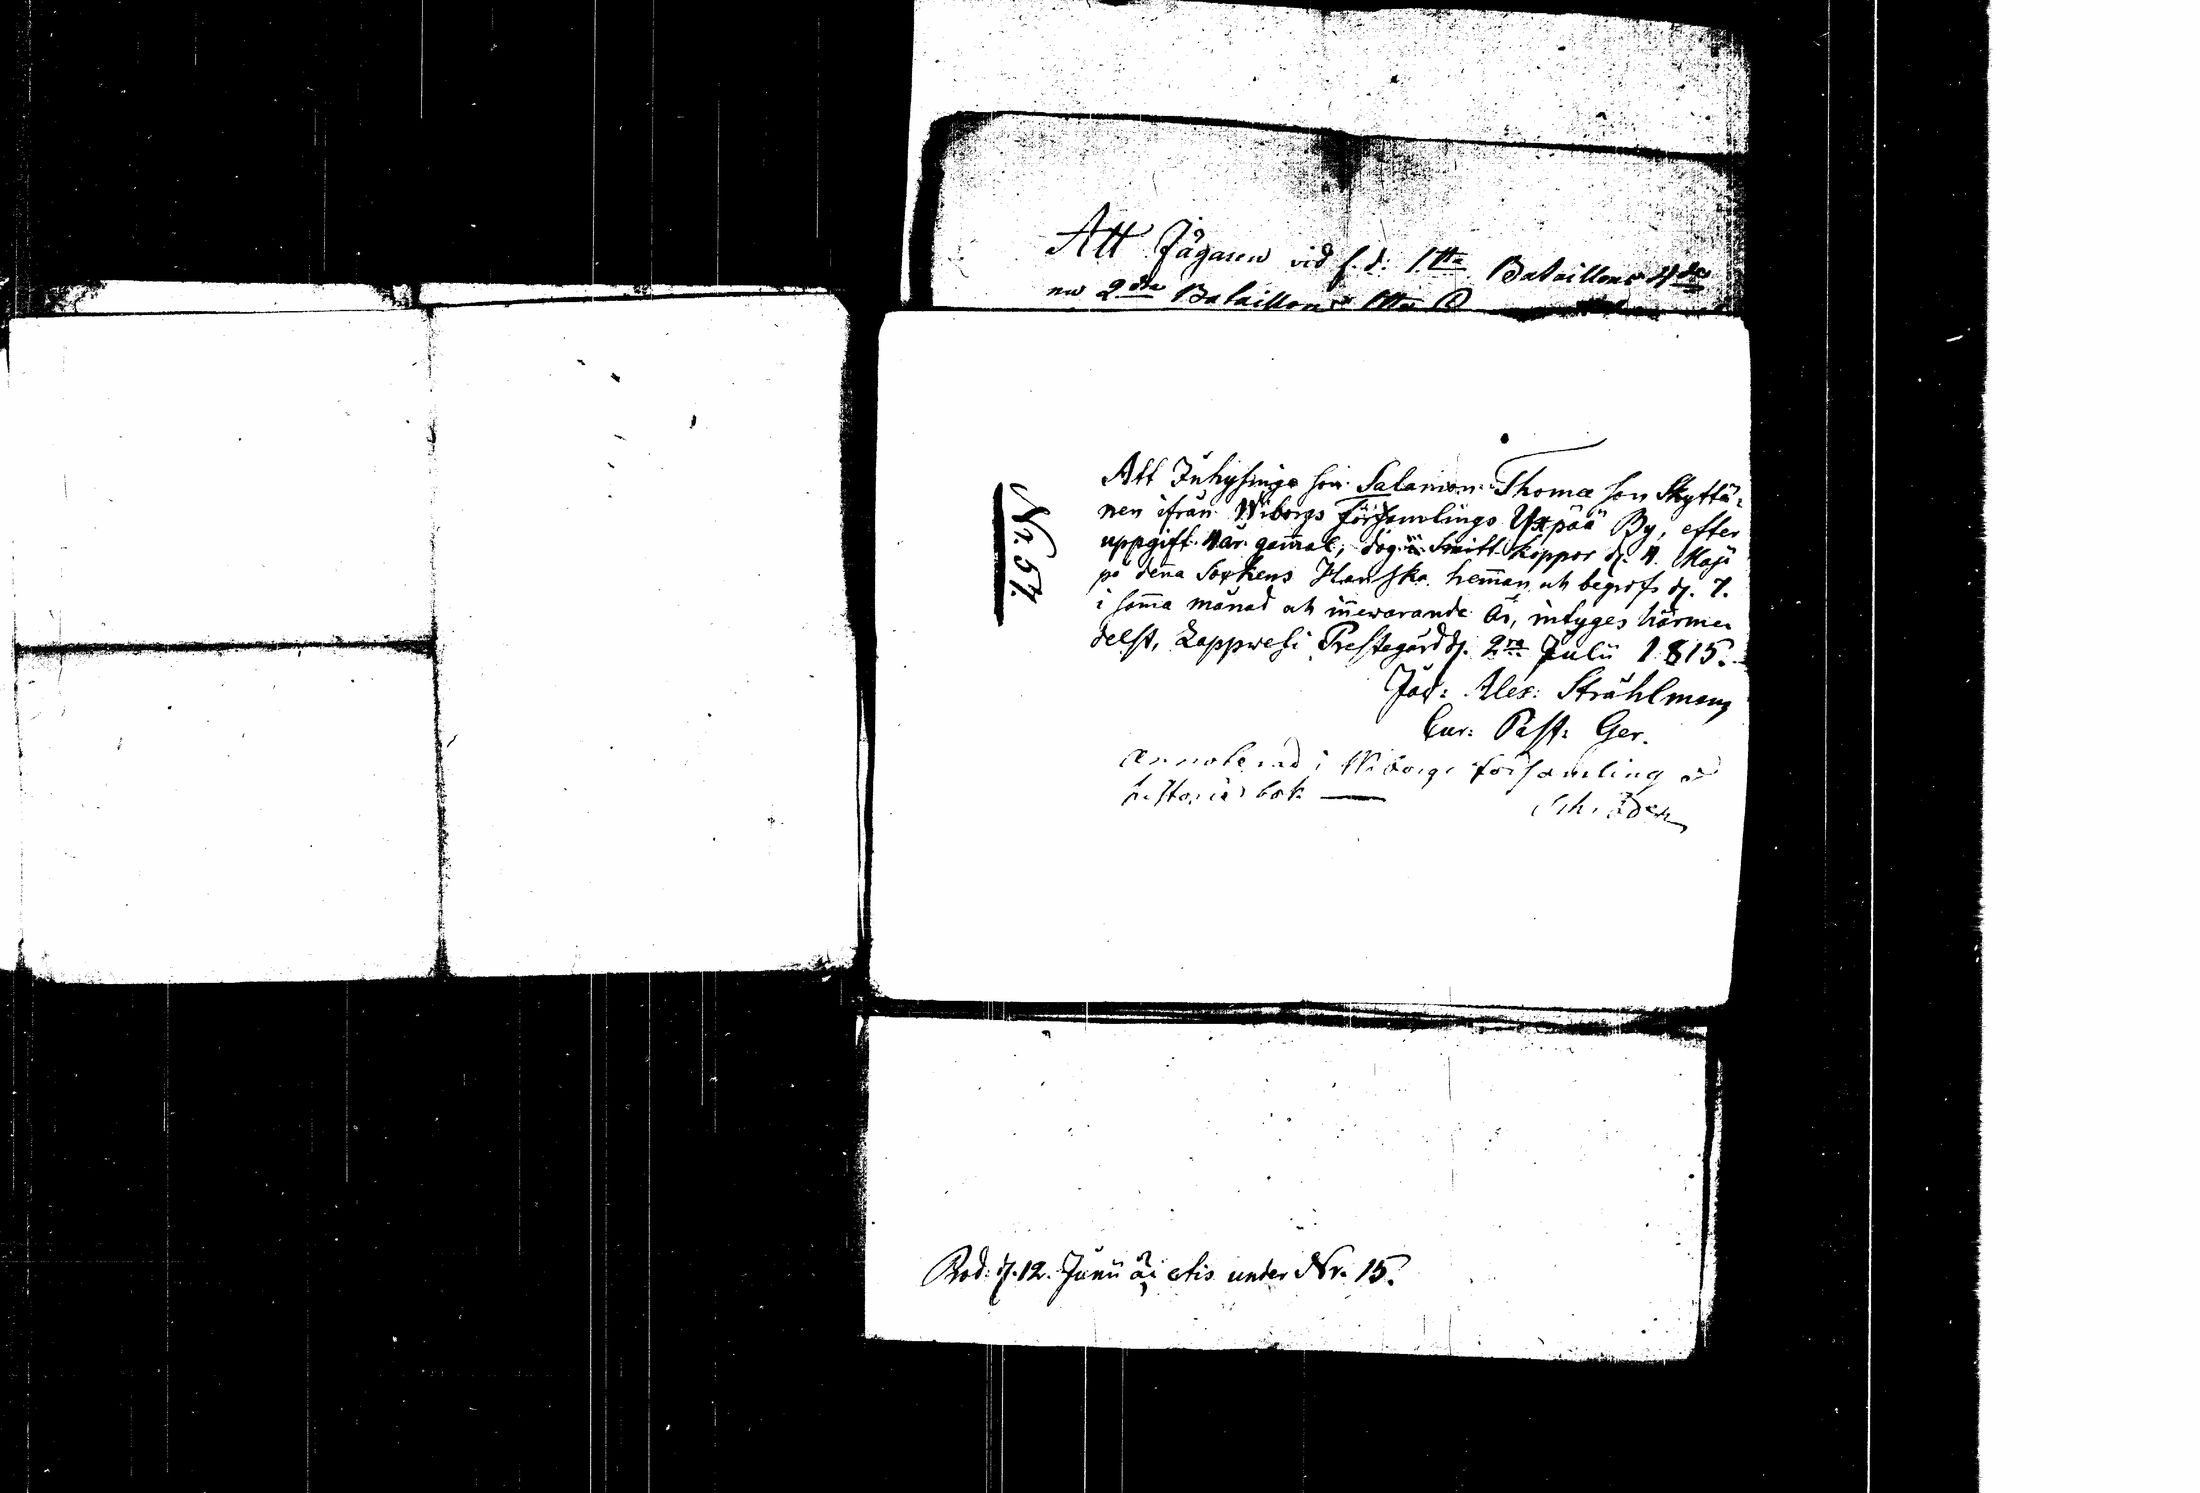 Att Jägaren vid f. d: 1sta Bataillons 4de
nu 2dra Bataillons 1sta C
Nr. 57.
Att Inhysinge son Salamon Thomæ son Skyttä=
nen ifrån Wiborgs församlings Yxpää By, efter
uppgift 4 år gam̄al, dog i Smitt koppor d. 4. Maji
på den̄a Sockens Hanska hem̄an och begrofs d. 7.
i sam̄a månad och in̄ewarande År, intyges härme
delst, Lappwesi Prestegård d. 2ra Julii 1815.
Jac: Alex: Stråhlman
Cur: Past: Ger.
Annoterad i Wiborgs församling
historie bok — Schröder
Prod: d. 12. Junii ai ctis under Nr. 15.